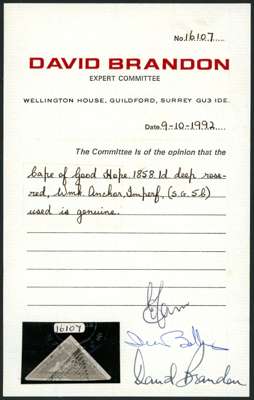 No. 16107
DAVID BRANDON
EXPERT COMMITTEE
WELLINGTON HOUSE, GUILDFORD, SURREY GU3 IDE.
Date 9-10-1992
The Committee Is of the opinion that the
Cape of Good Hope. 1858. 1d deep rose-
red, Wmk Anchor, Imperf, (S.G. 5b)
used is genuine.
16107
David Brandon